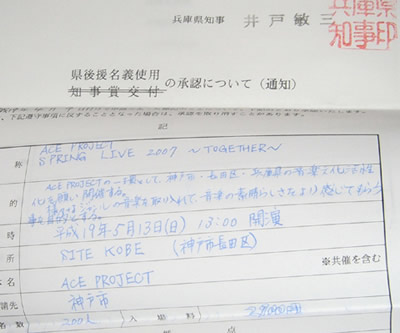 兵庫県知事 井戸敏三
兵庫県
知事印
県後援名義使用
知事賞交付
の承認について（通知）
下記遵守事項に反することとなった場合は、承認を取り消すことがあります。
記
称
ACE PROJECT
SPRING LIVE 2007 〜TOGETHER〜
的
ACE PROJECTの一環として、神戸市・長田区・兵庫県の音楽文化に活性
化を願い開催する。
の音楽を取り入れて、音楽の素晴らしさをより感じてもらう
事を目的とする。
時
平成19年5月13日(日) 13:00 開演
所
SITE KOBE (神戸市長田区)
※共催を含む
名
ACE PROJECT
請先
神戸市
人数
200人
入場料